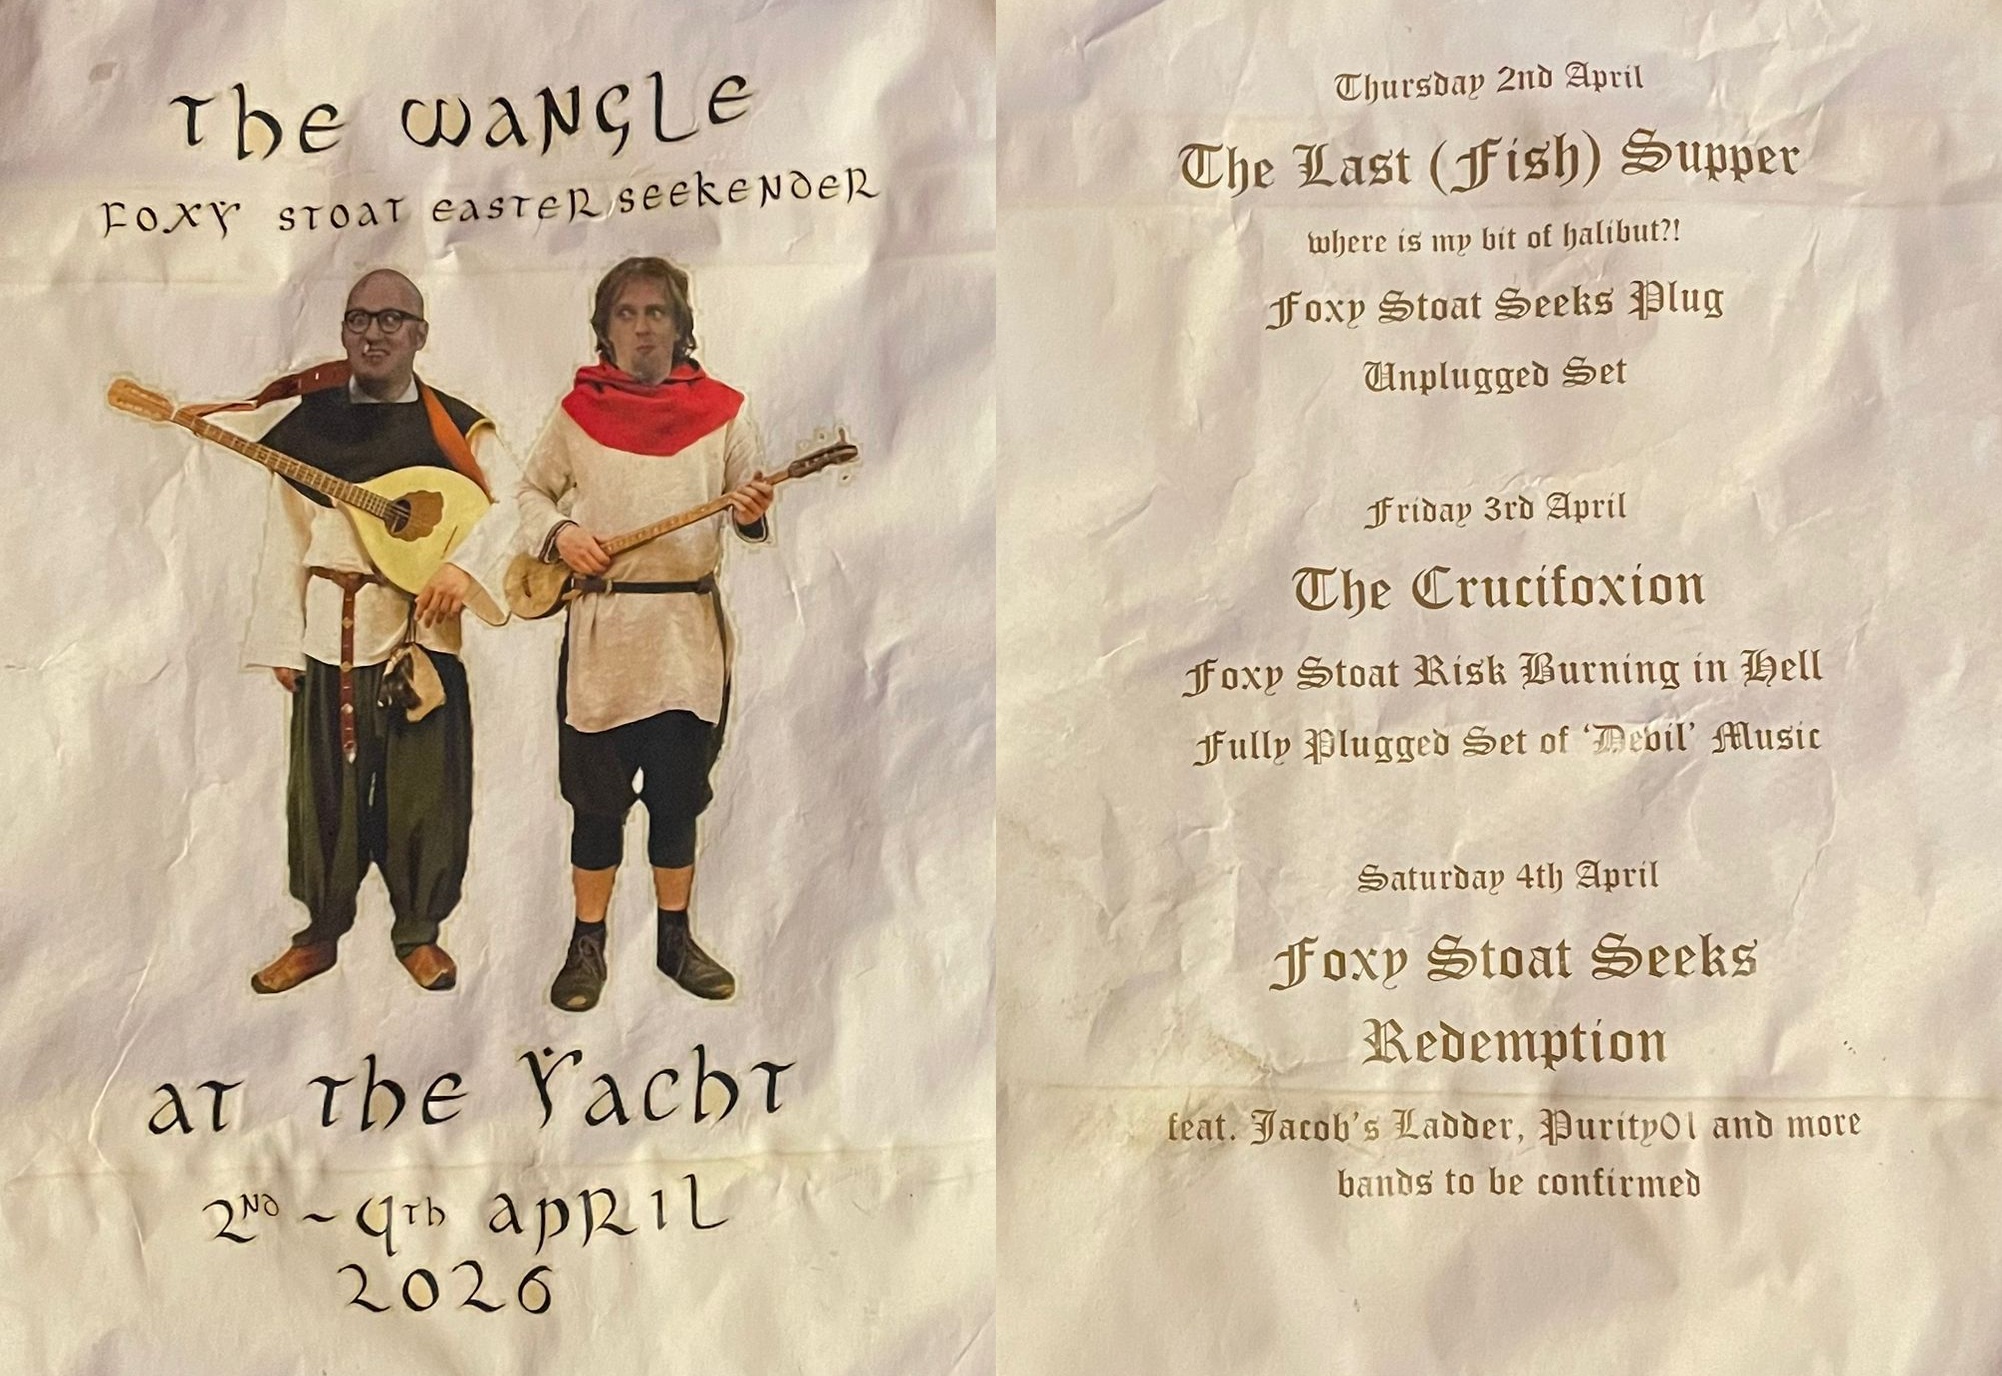 The Wangle
Foxy Stoat Easter Seekender
at the Yacht
2nd - 4th April
2026
Thursday 2nd April
The Last (Fish) Supper
where is my bit of halibut?!
Foxy Stoat Seeks Plug
Unplugged Set
Friday 3rd April
The Crucifoxion
Foxy Stoat Risk Burning in Hell
Fully Plugged Set of ‘Devil’ Music
Saturday 4th April
Foxy Stoat Seeks
Redemption
feat. Jacob’s Ladder, Purity01 and more
bands to be confirmed